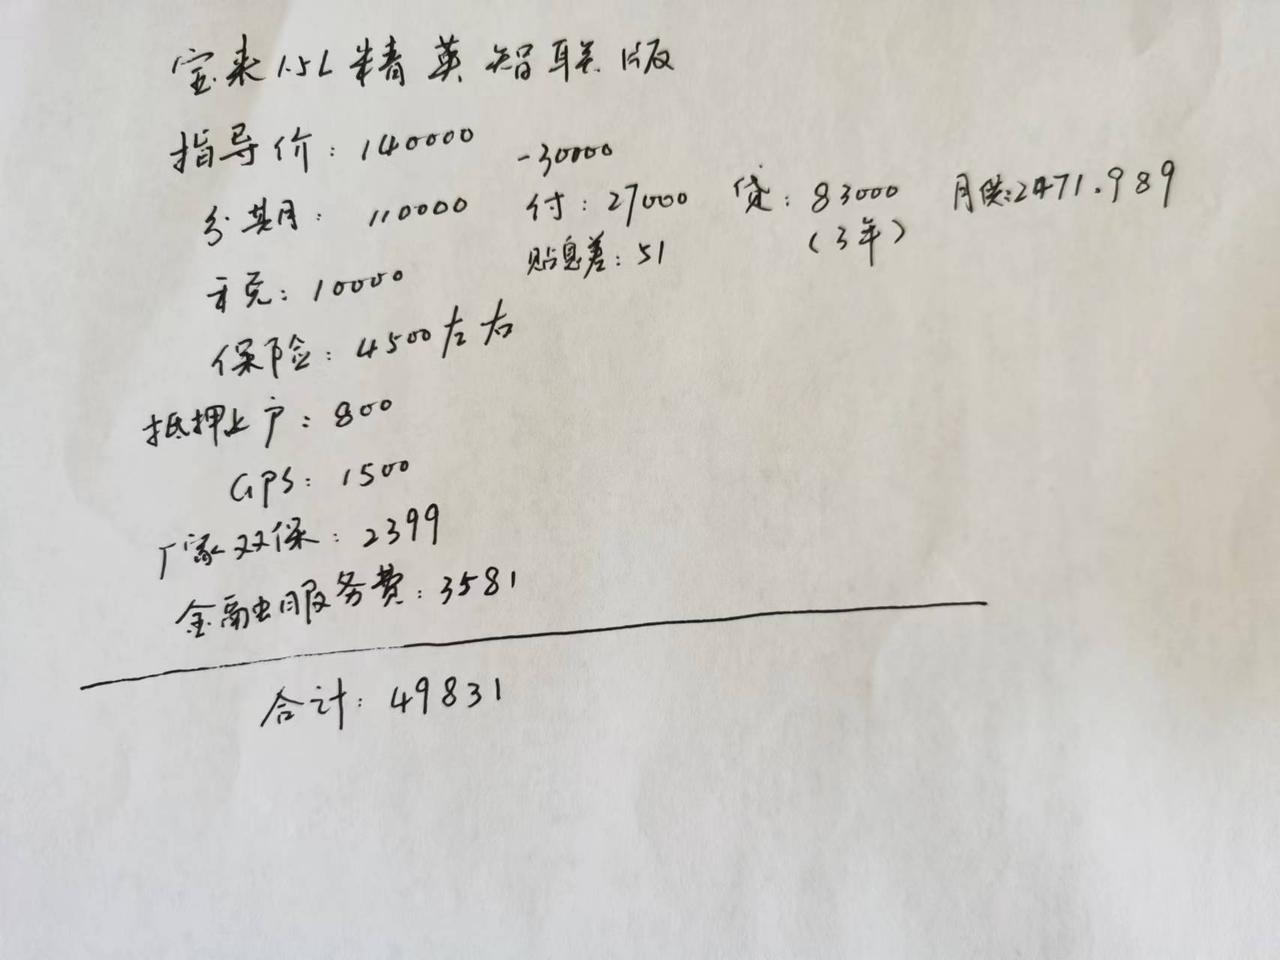 宝来1.5L精英智联版
指导价：140000 -30000
分期：110000 付：27000 贷：83000 月供：2471.989
贴息差：51 （3年）
税：10000
保险：4500左右
抵押上户：800
GPS：1500
厂家双保：2399
金融服务费：3581
合计：49831